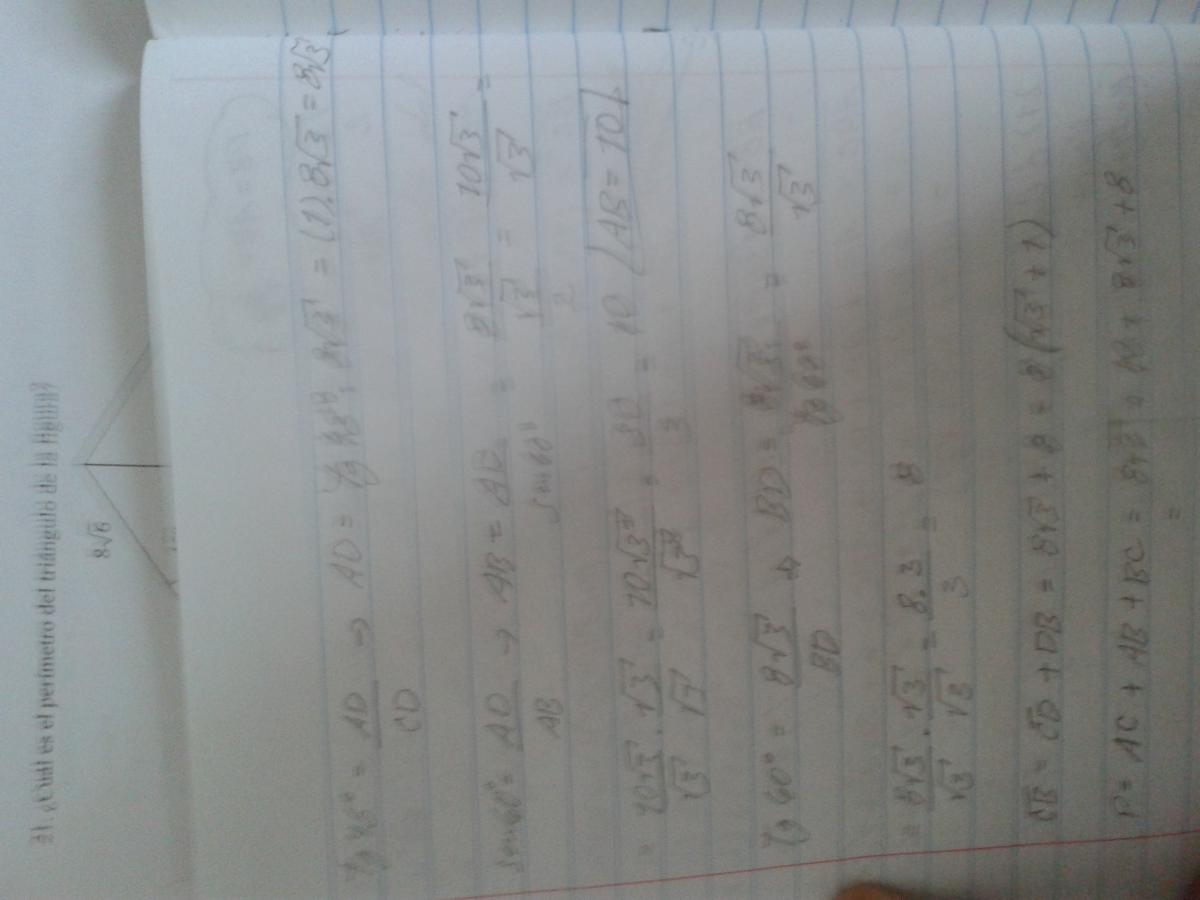 21. ¿Cuál es el perímetro del triángulo de la figura?
8√6
tg 45° = AD/CD → AD = tg 45°. 8√3 = (1). 8√3 = 8√3
sen 60° = AD/AB → AB = AD/sen 60° = 8√3/(√3/2) = 10√3/√3 =
= 10√3/√3 . √3/√3 = 10√3²/√3² = 30/3 = 10 AB = 10
tg 60° = 8√3/BD → BD = 8√3/tg 60° = 8√3/√3
= 8√3/√3 . √3/√3 = 8.3/3 = 8
CB = CD + DB = 8√3 + 8 = 8(√3 + 1)
P = AC + AB + BC = 8√3 + 8
=